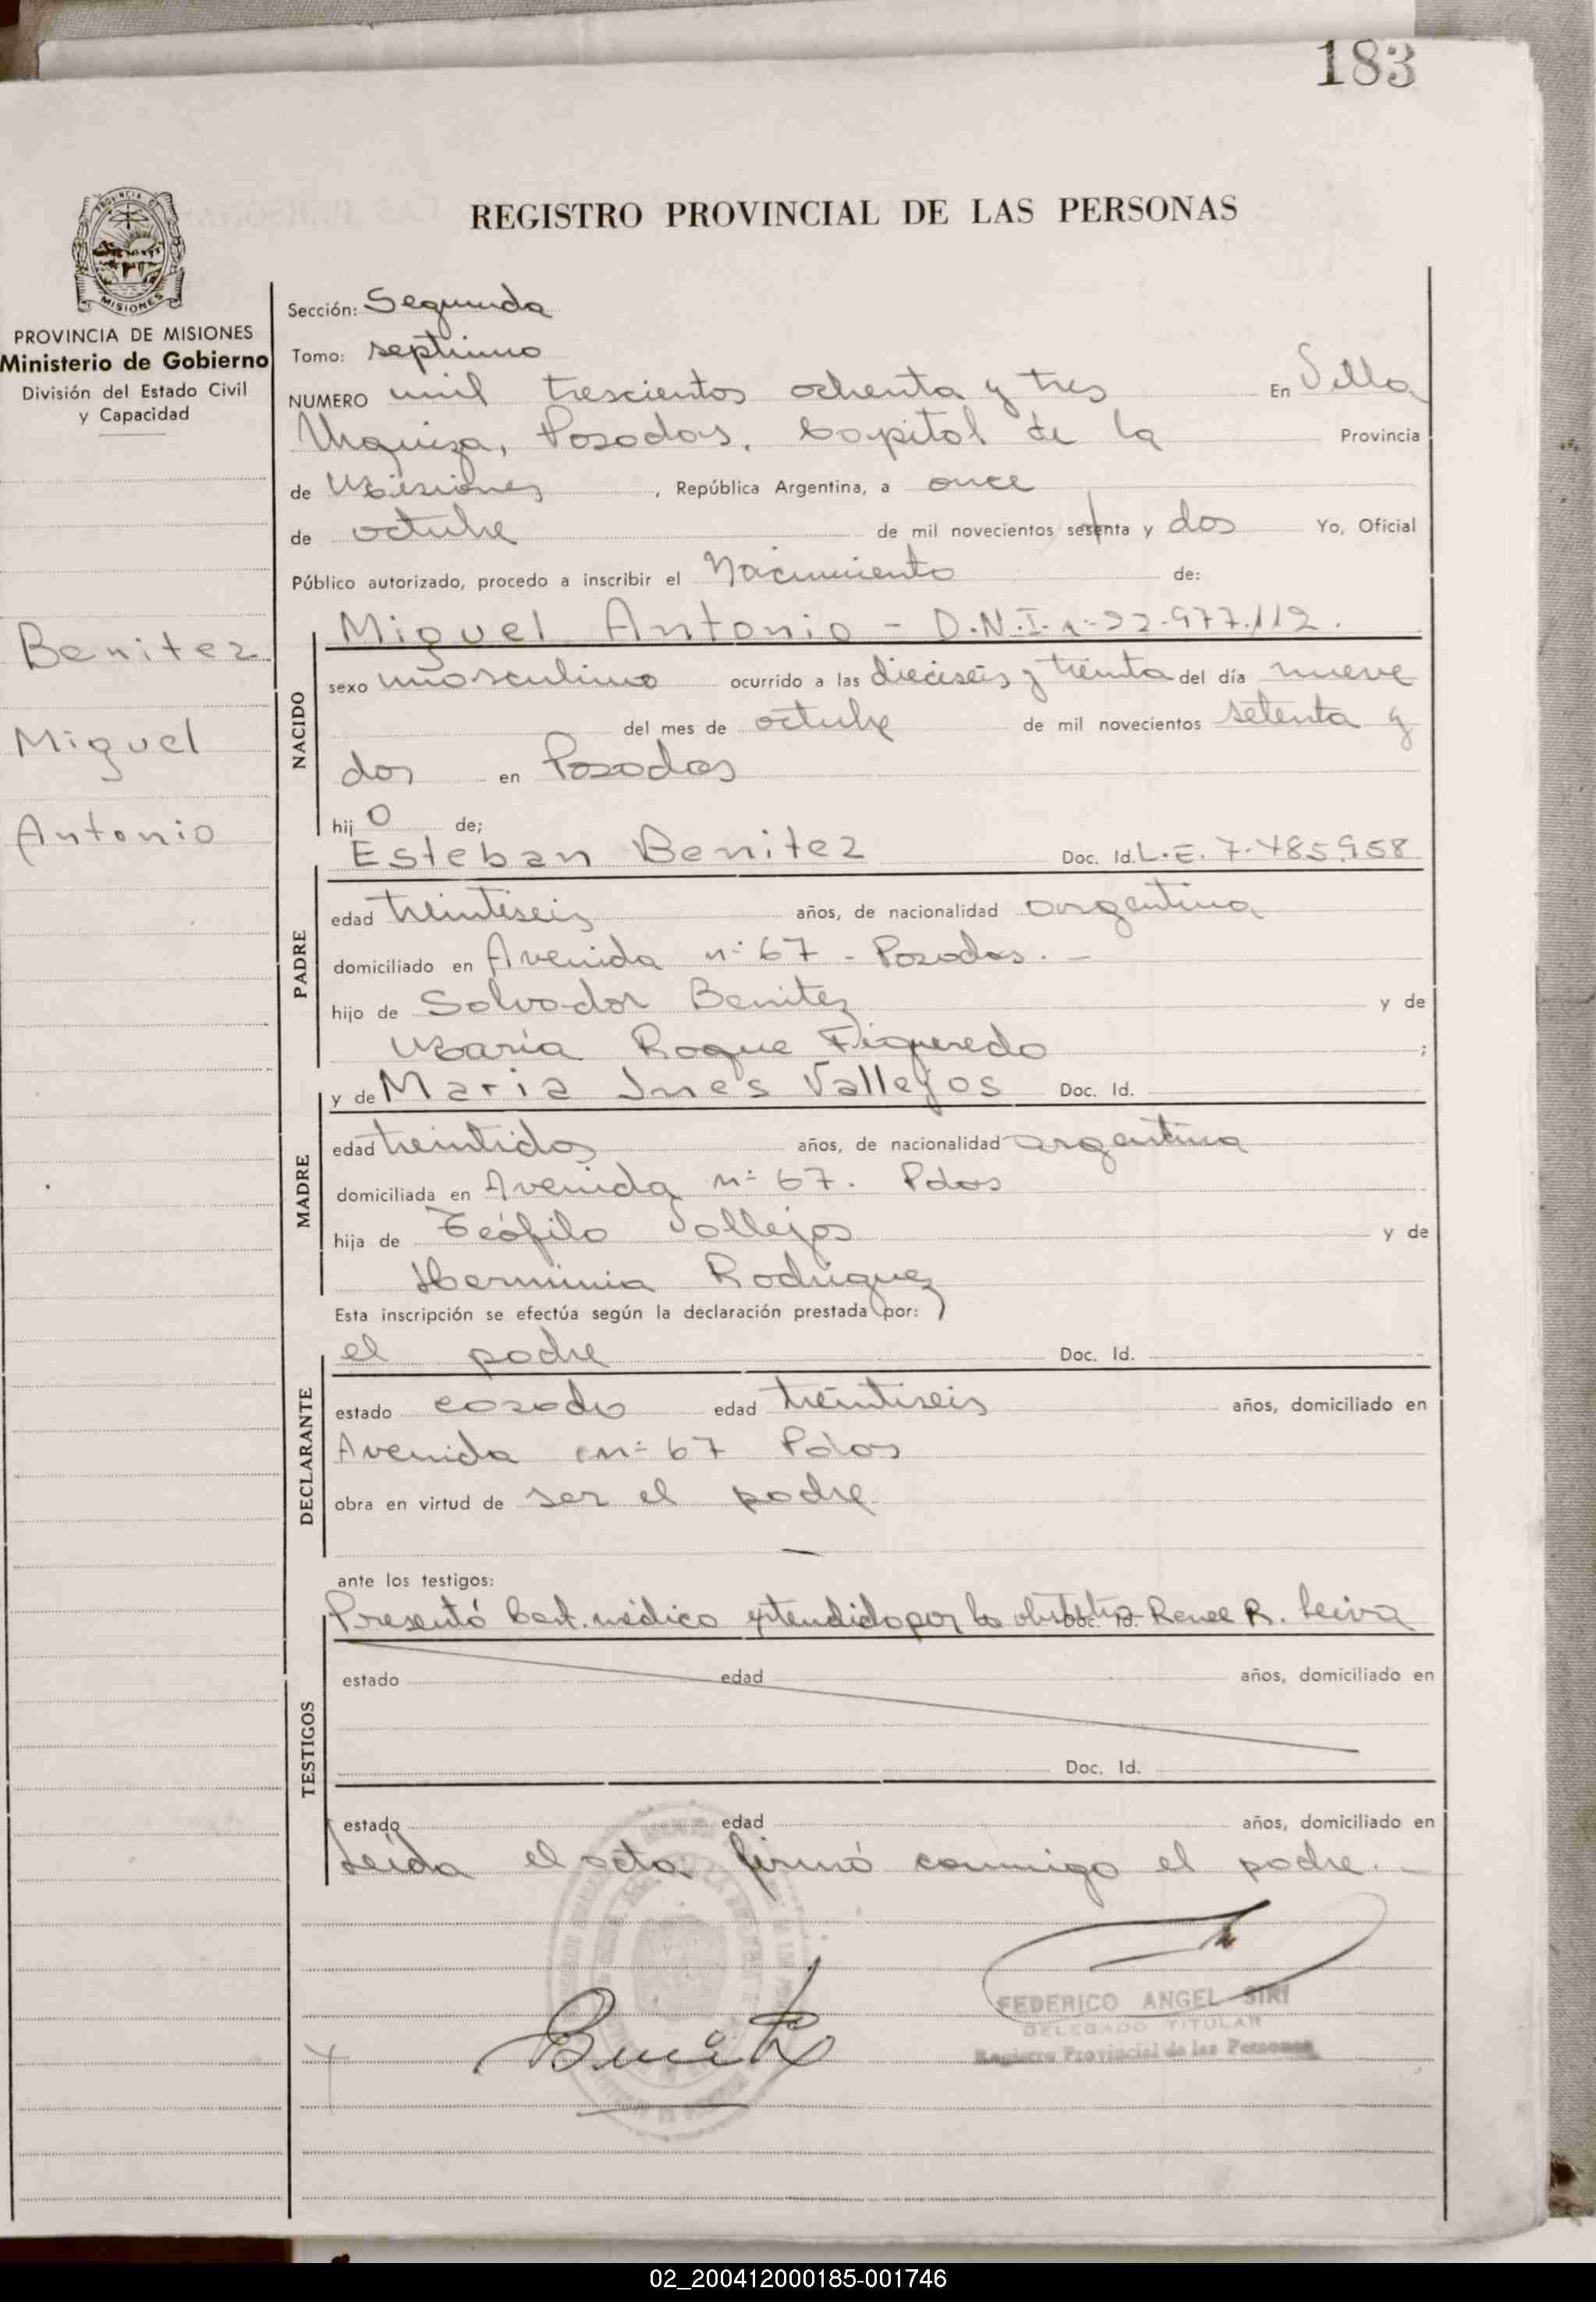 183
REGISTRO PROVINCIAL DE LAS PERSONAS
PROVINCIA DE MISIONES
MISIONES
PROVINCIA DE MISIONES
Ministerio de Gobierno
División del Estado Civil
y Capacidad
Benitez
Miguel
Antonio
Sección: Segunda
Tomo: septimo
NUMERO mil trescientos ochenta y tres En Villa
Urquiza, Posadas, Capital de la Provincia
de Misiones, República Argentina, a once
de octubre de mil novecientos sesenta y dos Yo, Oficial
Público autorizado, procedo a inscribir el Nacimiento de:
NACIDO
Miguel Antonio - D.N.I. n: 22.977.112.
sexo masculino ocurrido a las dieciseis y treinta del día nueve
del mes de octubre de mil novecientos setenta y
dos en Posadas
hijo de;
PADRE
Esteban Benitez Doc. Id. L.E. 7.485.958
edad treintiseis años, de nacionalidad argentina
domiciliado en Avenida n: 67 - Posadas. -
hijo de Salvador Benitez y de
María Roque Figueredo ;
MADRE
y de Maria Inés Vallejos Doc. Id.
edad treintidos años, de nacionalidad argentina
domiciliada en Avenida n: 67. Pdas
hija de Teófilo Vallejos y de
Herminia Rodriguez
Esta inscripción se efectúa según la declaración prestada por:
DECLARANTE
el padre Doc. Id.
estado casado edad treintiseis años, domiciliado en
Avenida n: 67 Pdas
obra en virtud de ser el padre
ante los testigos:
TESTIGOS
Presentó Cert. médico extendido por la obstetra Doc. Id. Renee R. Leiva
estado edad años, domiciliado en
Doc. Id.
estado edad años, domiciliado en
Leída el acta firmó conmigo el padre. -
Benitez
FEDERICO ANGEL SIRI
DELEGADO TITULAR
Registro Provincial de las Personas
02_200412000185-001746